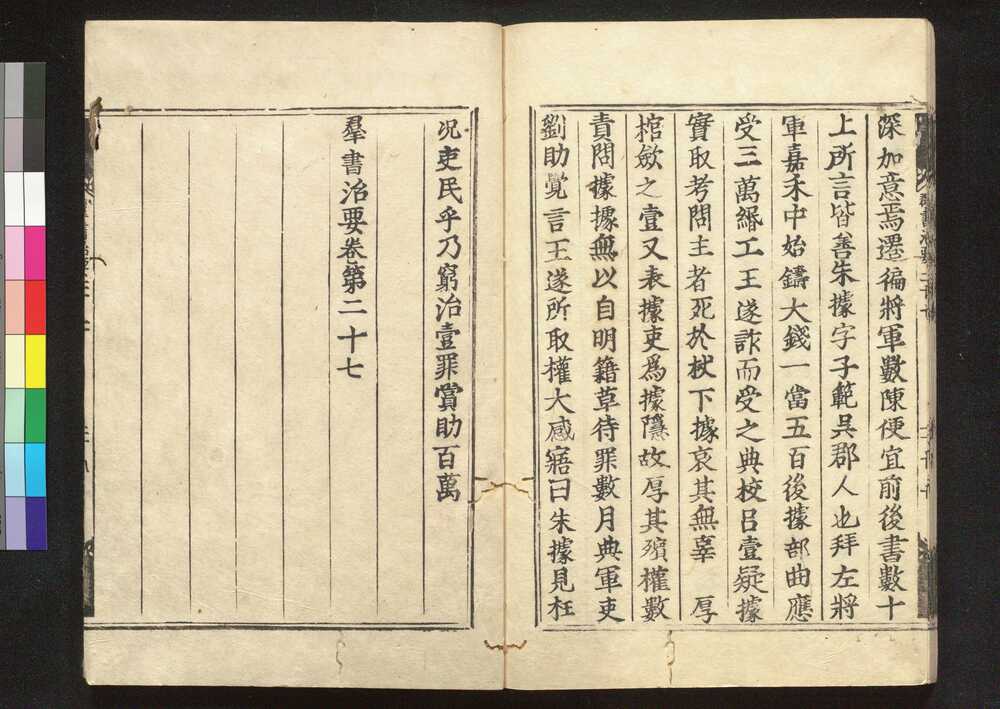 深加意焉遷徧將軍數陳便宜前後書數十
上所言皆善朱據字子範吳郡人也拜左將
軍嘉禾中始鑄大錢一當五百後據部曲應
受三萬緡工王遂詐而受之典校呂壹疑據
實取考問主者死於杖下據哀其無辜 厚
棺斂之壹又表據吏爲據隱故厚其殯權數
責問據據無以自明籍草待罪數月典軍吏
劉助覺言王遂所取權大感寤曰朱據見枉
况吏民乎乃窮治壹罪賞助百萬
羣書治要卷第二十七